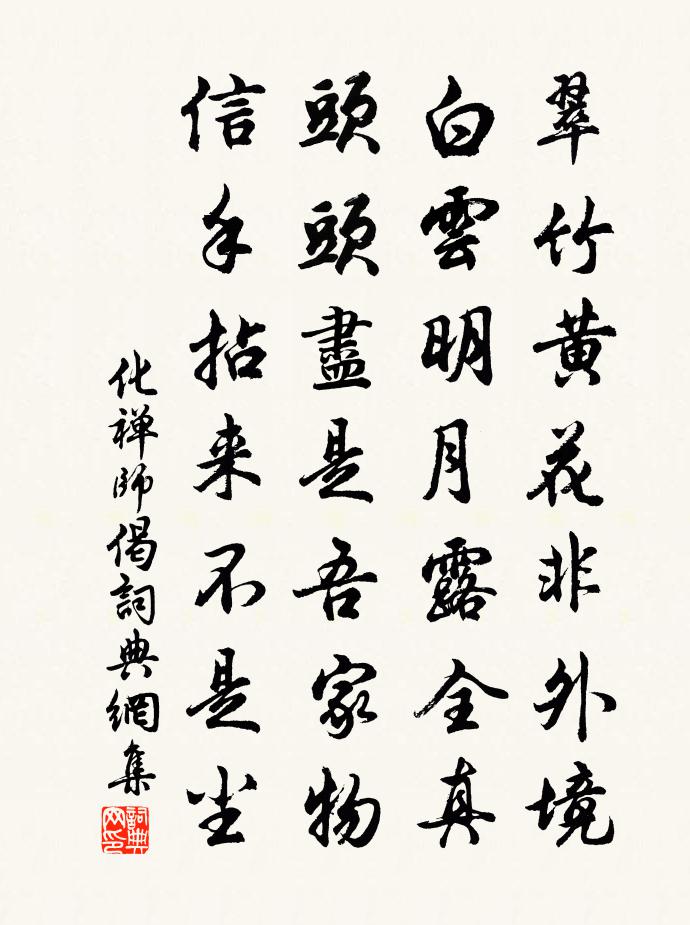 翠竹黄花非外境
白雲明月露全真
頭頭盡是吾家物
信手拈来不是尘
化禅师偈詞典網集
詞典网印